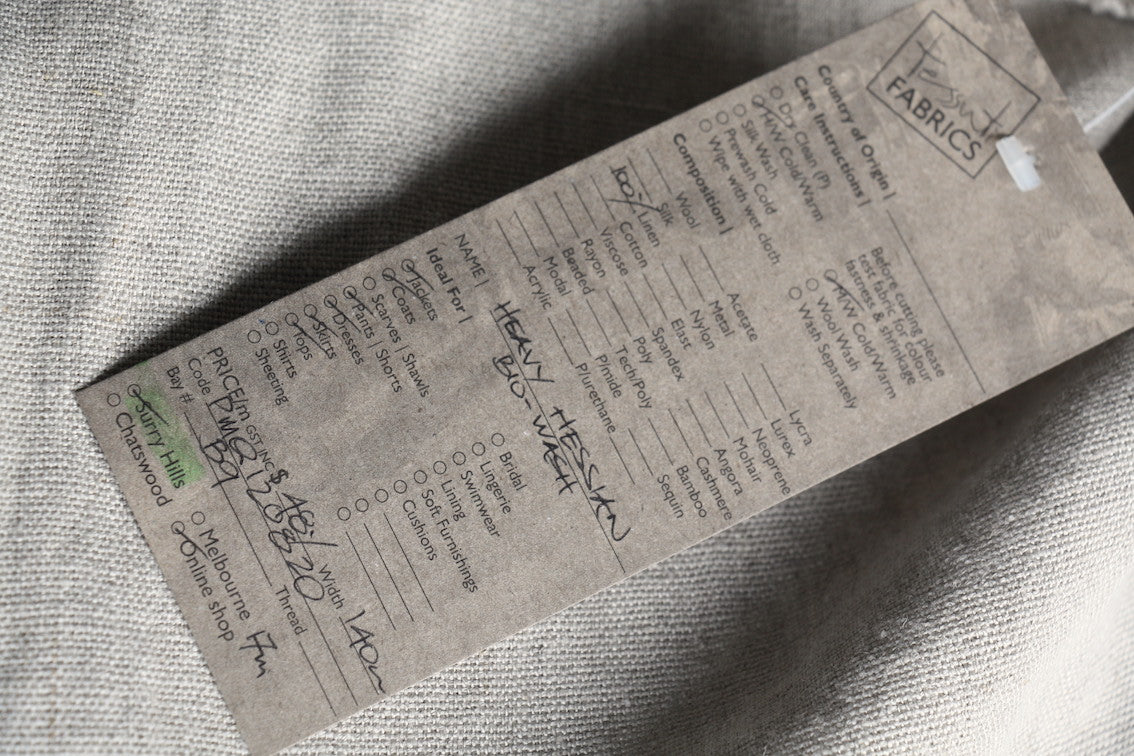 Tessuti
FABRICS
Country of Origin |
Care Instructions |
Dry Clean (P)
H/W Cold/Warm
Silk Wash
Prewash Cold
Wipe with wet cloth
Before cutting please
test fabric for colour
fastness & shrinkage
H/W Cold/Warm
Wool Wash
Wash Separately
Composition |
Wool
Silk
100% Linen
Cotton
Viscose
Rayon
Beaded
Modal
Acrylic
Acetate
Metal
Nylon
Elast
Spandex
Poly
Tech/Poly
P/mide
P/urethane
Lycra
Lurex
Neoprene
Mohair
Angora
Cashmere
Bamboo
Sequin
NAME | HEAVY HESSIAN
BIO-WASH
Ideal For |
Jackets
Coats
Scarves | Shawls
Pants | Shorts
Dresses
Skirts
Tops
Shirts
Sheeting
Bridal
Lingerie
Swimwear
Lining
Soft Furnishings
Cushions
PRICE/m GST INC $ 48./ Width 140cm
Code DMG120820 Thread
Bay # B9
Surry Hills
Chatswood
Melbourne
Online shop 17m